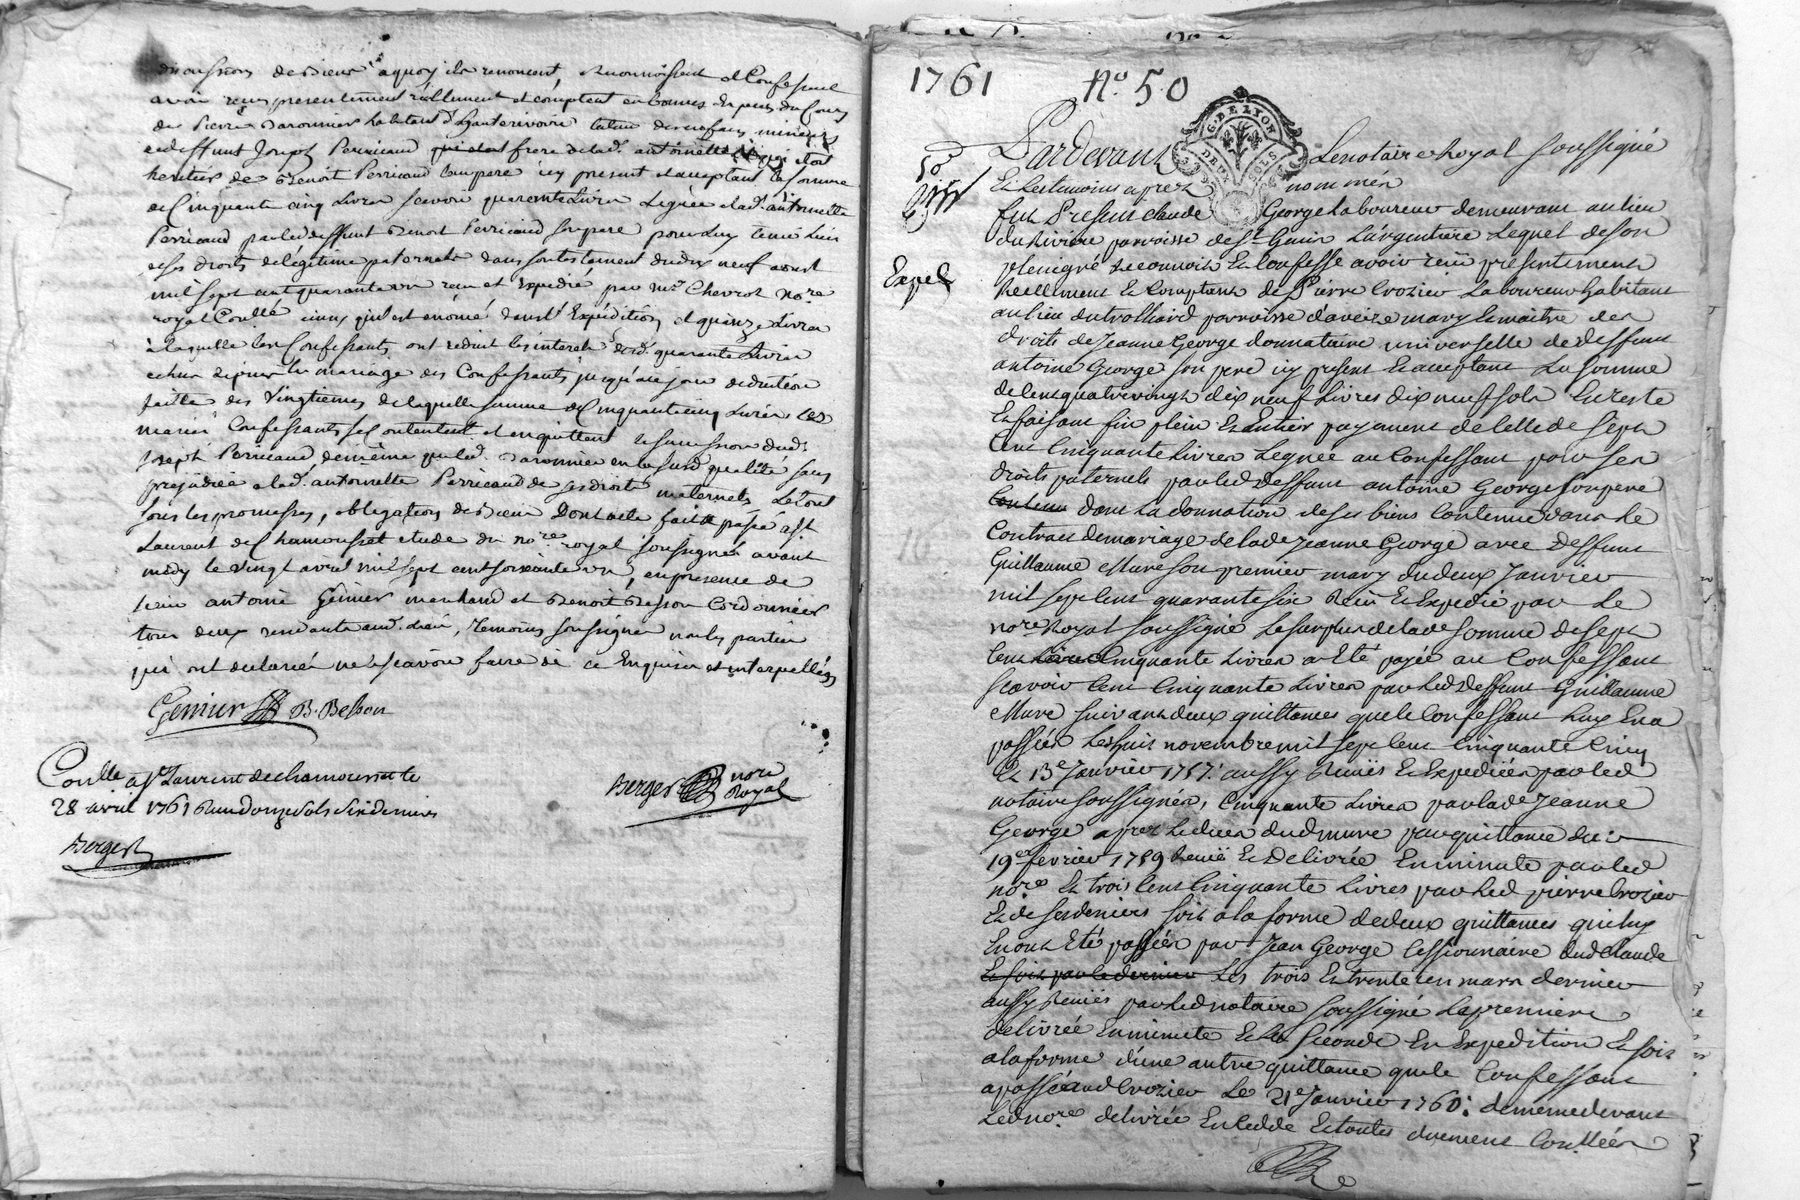 discussion de dieux aquoy ils renoncent, Reconnoissent et Confessent
avoir reçus presentement réellement et comptant en bonnes Especes du Cours
de Pierre Baronnier habitant d'hauterivoire tuteur des enfans mineurs
de deffunt Joseph Perricaud qui étoit frere de lad. antoinette
heritier de Benoit Perricaud leur pere icy present et acceptant la somme
de Cinquante cinq Livres scavoir quarente Livres Leguée à lad. antoinette
Perricaud par led. deffunt Benoit Perricaud son pere pour luy tenir Lieu
de ses droits de légitime paternels dans son testament du dix neuf aoust
mil sept cent quarante un reçu et Expedié par Mre. Chevrot nore.
royal Conllé ainsy qu'il est énoncé dans l'Expédition et quinze Livres
à laquelle les Confessants ont reduit les interets desd. quarante Livres
echus depuis le mariage des Confessants jusqu'à ce jour deduction
faitte des Vingtiemes de laquelle somme de Cinquante cinq Livres les
mariés Confessants se Contentent et en quittent la succession dud.
Joseph Perricaud de même que led. Baronnier en lasusd. qualité sans
prejudice à lad. antoinette Perricaud de ses droits maternels Le tout
sous les promesses, obligations de Biens Dont acte fait et passé à St.
Laurent de Chamousset etude du nore. royal soussigné avant
midy le vingt avril mil sept cent soixante un, en presence de
sieur antoine Génier marchand et Benoit Besson Cordonnier
tous deux residants aud. lieu, temoins soussignés non les parties
qui ont declaré ne scavoir faire de ce Enquises et interpellés
Génier B. Besson
Berger nore Royal
Conlle à St. Laurent de chamousset le
28 avril 1761 Reçu douze sols six deniers
Berger
1761 No. 50
G. DE LYON
DEUX SOLS
Pardevant Le notaire Royal soussigné
Et les temoins apres nommés
Expée
fut Present Claude George laboureur demeurant au lieu
du Riviere parroisse de St. Genis L'argentiere Lequel de son
plein gré Reconnoit Et Confesse avoir reçû presentement
Reellement Et Comptant de Pierre Crozier Laboureur habitant
au lieu du trolliard parroisse d'aveize mary Et maitre des
droits de Jeanne George donnataire universelle de deffunt
antoine George son pere icy present Et acceptant La somme
de Cent quatre vingt dix neuf livres dix neuf sols En reste
Et faisant fin plein Et Entier payement de Celle de sept
Cent Cinquante Livres Leguée au Confessant pour ses
droits paternels par led. deffunt antoine George son pere
dans la donnation de ses biens Contenue dans le
Contrat de mariage de lade Jeanne George avec deffunt
Guillaume Mure son premier mary du deux Janvier
mil sept Cent quarante six Reçû Et Expedié par le
nore. Royal soussigné Le surplus de lade somme de sept
Cent Cinquante Livres a Eté payée au Confessant
scavoir Cent Cinquante Livres par led. deffunt Guillaume
Mure suivant deux quittances que le Confessant luy En a
passées Les huit novembre mil sept Cent Cinquante Cinq
Et 13e. Janvier 1757. aussy Reçûes Et Expediées par led.
notaire soussigné, Cinquante Livres par lade Jeanne
George apres Le deces dud. mure par quittance du
19e. fevrier 1759 Reçüe Et Delivrée En minute par led.
nore. Et trois Cent Cinquante Livres par led. pierre Crozier
Et de ses deniers soit a la forme de deux quittances qui luy
En ont Eté passées par Jean George Cessionnaire dud. Claude
Et soit par la derniere Les trois Et trente un mars dernier
aussy Reçües par led. notaire soussigné La premiere
delivrée En minute Et la seconde En Expedition Et soit
a la forme d'une autre quittance que le Confessant
a passé aud. Crozier Le 21e. Janvier 1760. de meme devant
Led. nore. delivrée En Cedde Et toutes duement Conllées